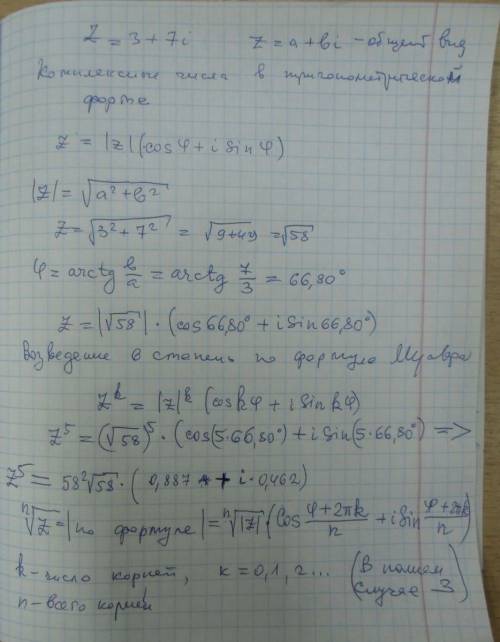 Z = 3 + 7i   Z = a + bi - общий вид
Комплексные числа в тригонометрической
форме
Z = |z| (cos φ + i sin φ)
|Z| = √(a² + b²)
Z = √(3² + 7²) = √(9+49) = √58
φ = arctg b/a = arctg 7/3 = 66,80°
Z = |√58| · (cos 66,80° + i sin 66,80°)
Возведение в степень по формуле Муавра
Z^k = |z|^k (cos kφ + i sin kφ)
Z⁵ = (√58)⁵ · (cos(5·66,80°) + i sin(5·66,80°) =>
Z⁵ = 58²√58 · (0,887 + i·0,462)
ⁿ√Z = |по формуле| = ⁿ√|Z| · (cos (φ+2πk)/n + i sin (φ+2πk)/n)
k - число корней, k = 0, 1, 2... (В нашем
случае 3)
n - всего корней